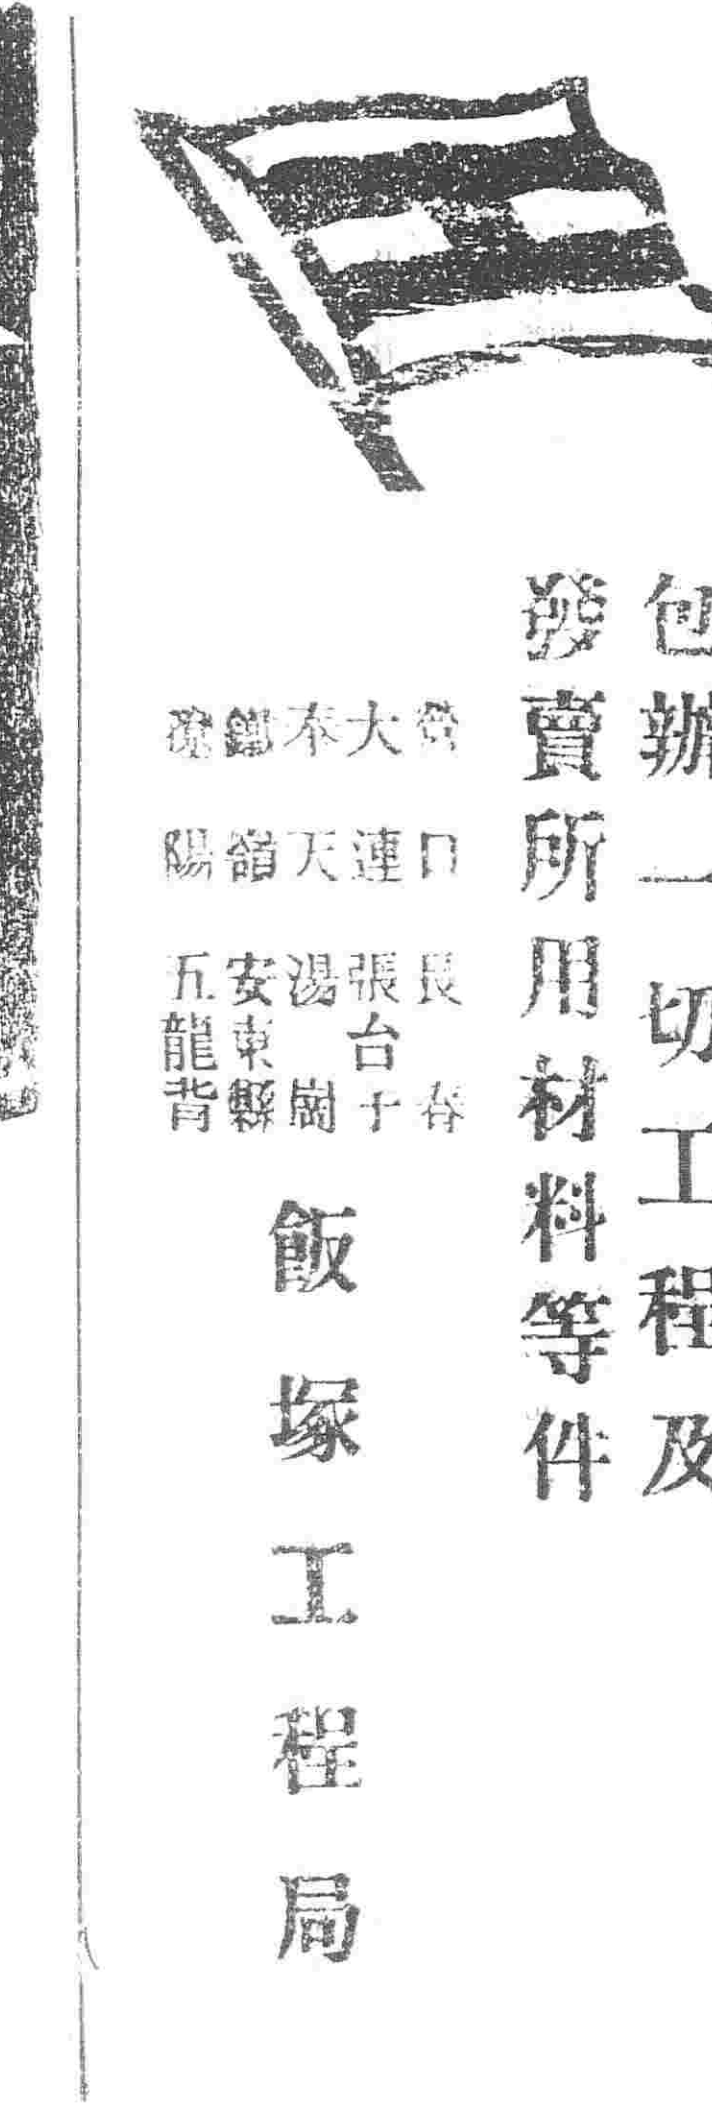 包辦一切工程及
發賣所用材料等件
營口 長春
大連 張台子
奉天 湯崗
鐵嶺 安東縣
遼陽 五龍背
飯塚工程局
八